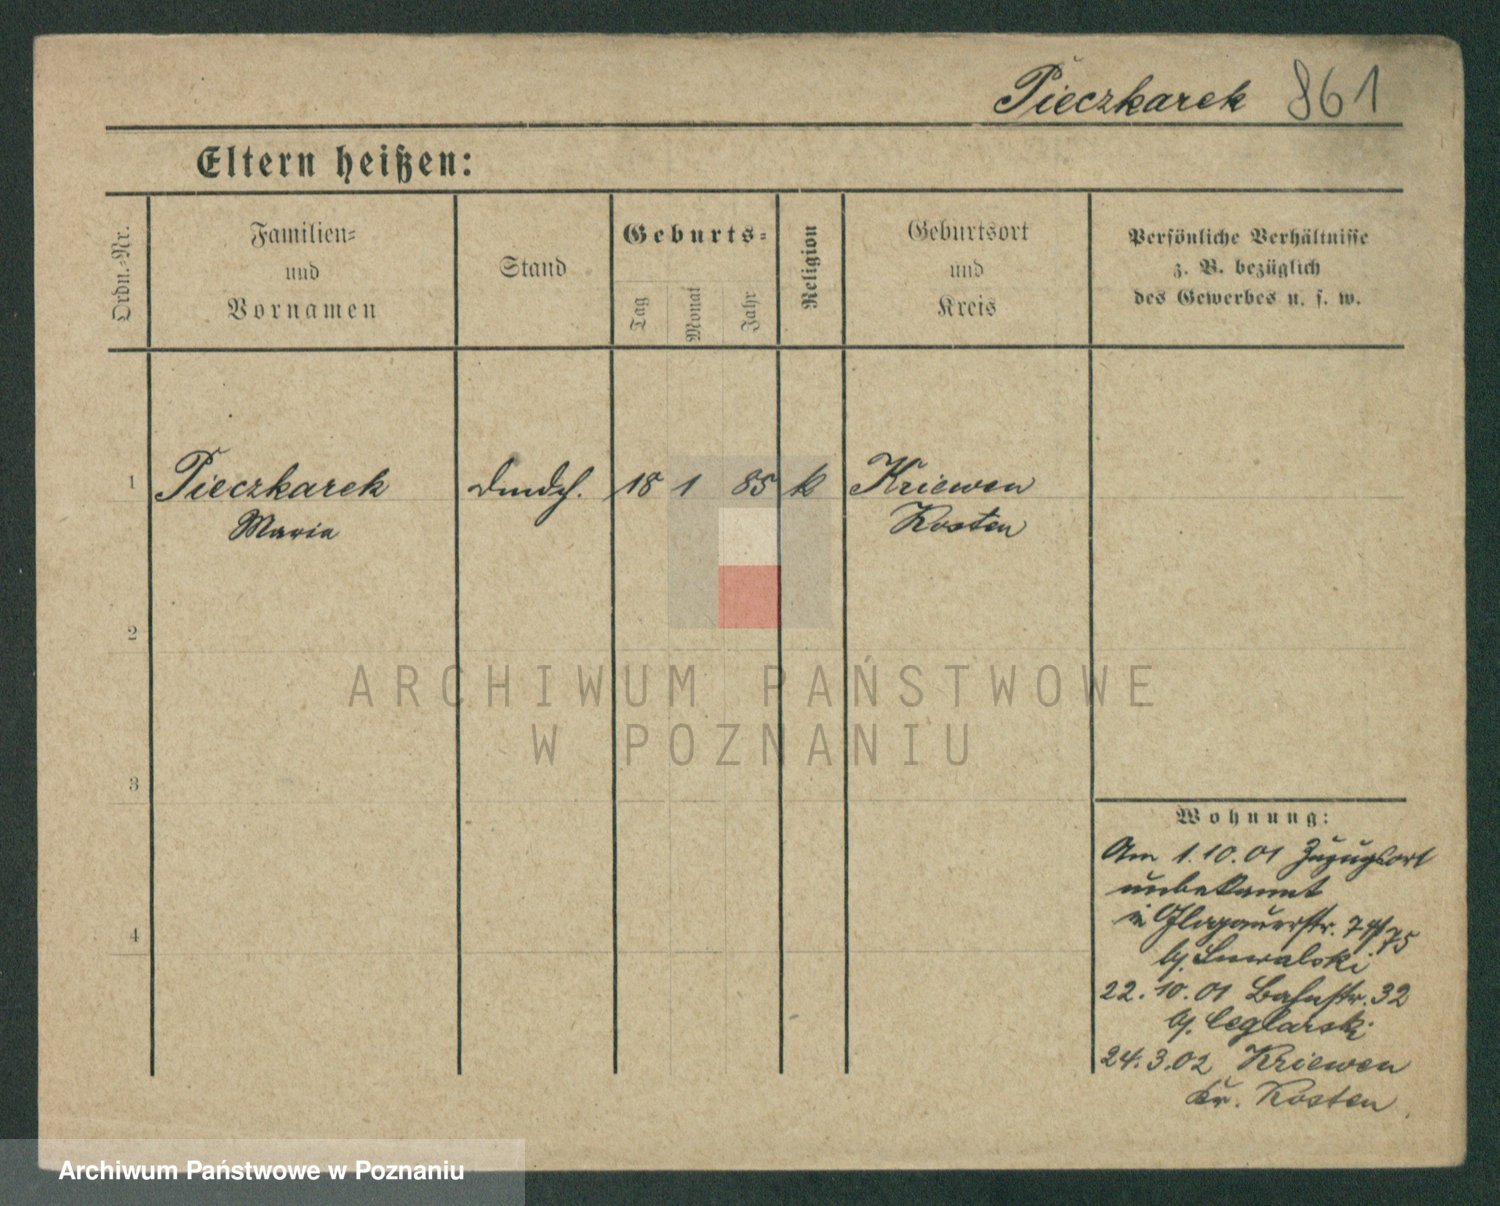 Pieczkarek 861
Eltern heißen:
Ordn.-Nr.
Familien-
und
Vornamen
Stand
Geburts-
Tag
Monat
Jahr
Religion
Geburtsort
und
Kreis
Persönliche Verhältnisse
z. B. bezüglich
des Gewerbes u. s. w.
1 Pieczkarek 18 1 85 k Kriewen
Maria Kosten
2
3
4
Wohnung:
Am 1.10.01 Zuzugsort
unbekannt
in Glogauerstr.
b/. Suwalski
22.10.01 Bahnstr. 32
b/. Ceglarski
24.3.02 Kriewen
Kr. Kosten
ARCHIWUM PAŃSTWOWE
W POZNANIU
Archiwum Państwowe w Poznaniu